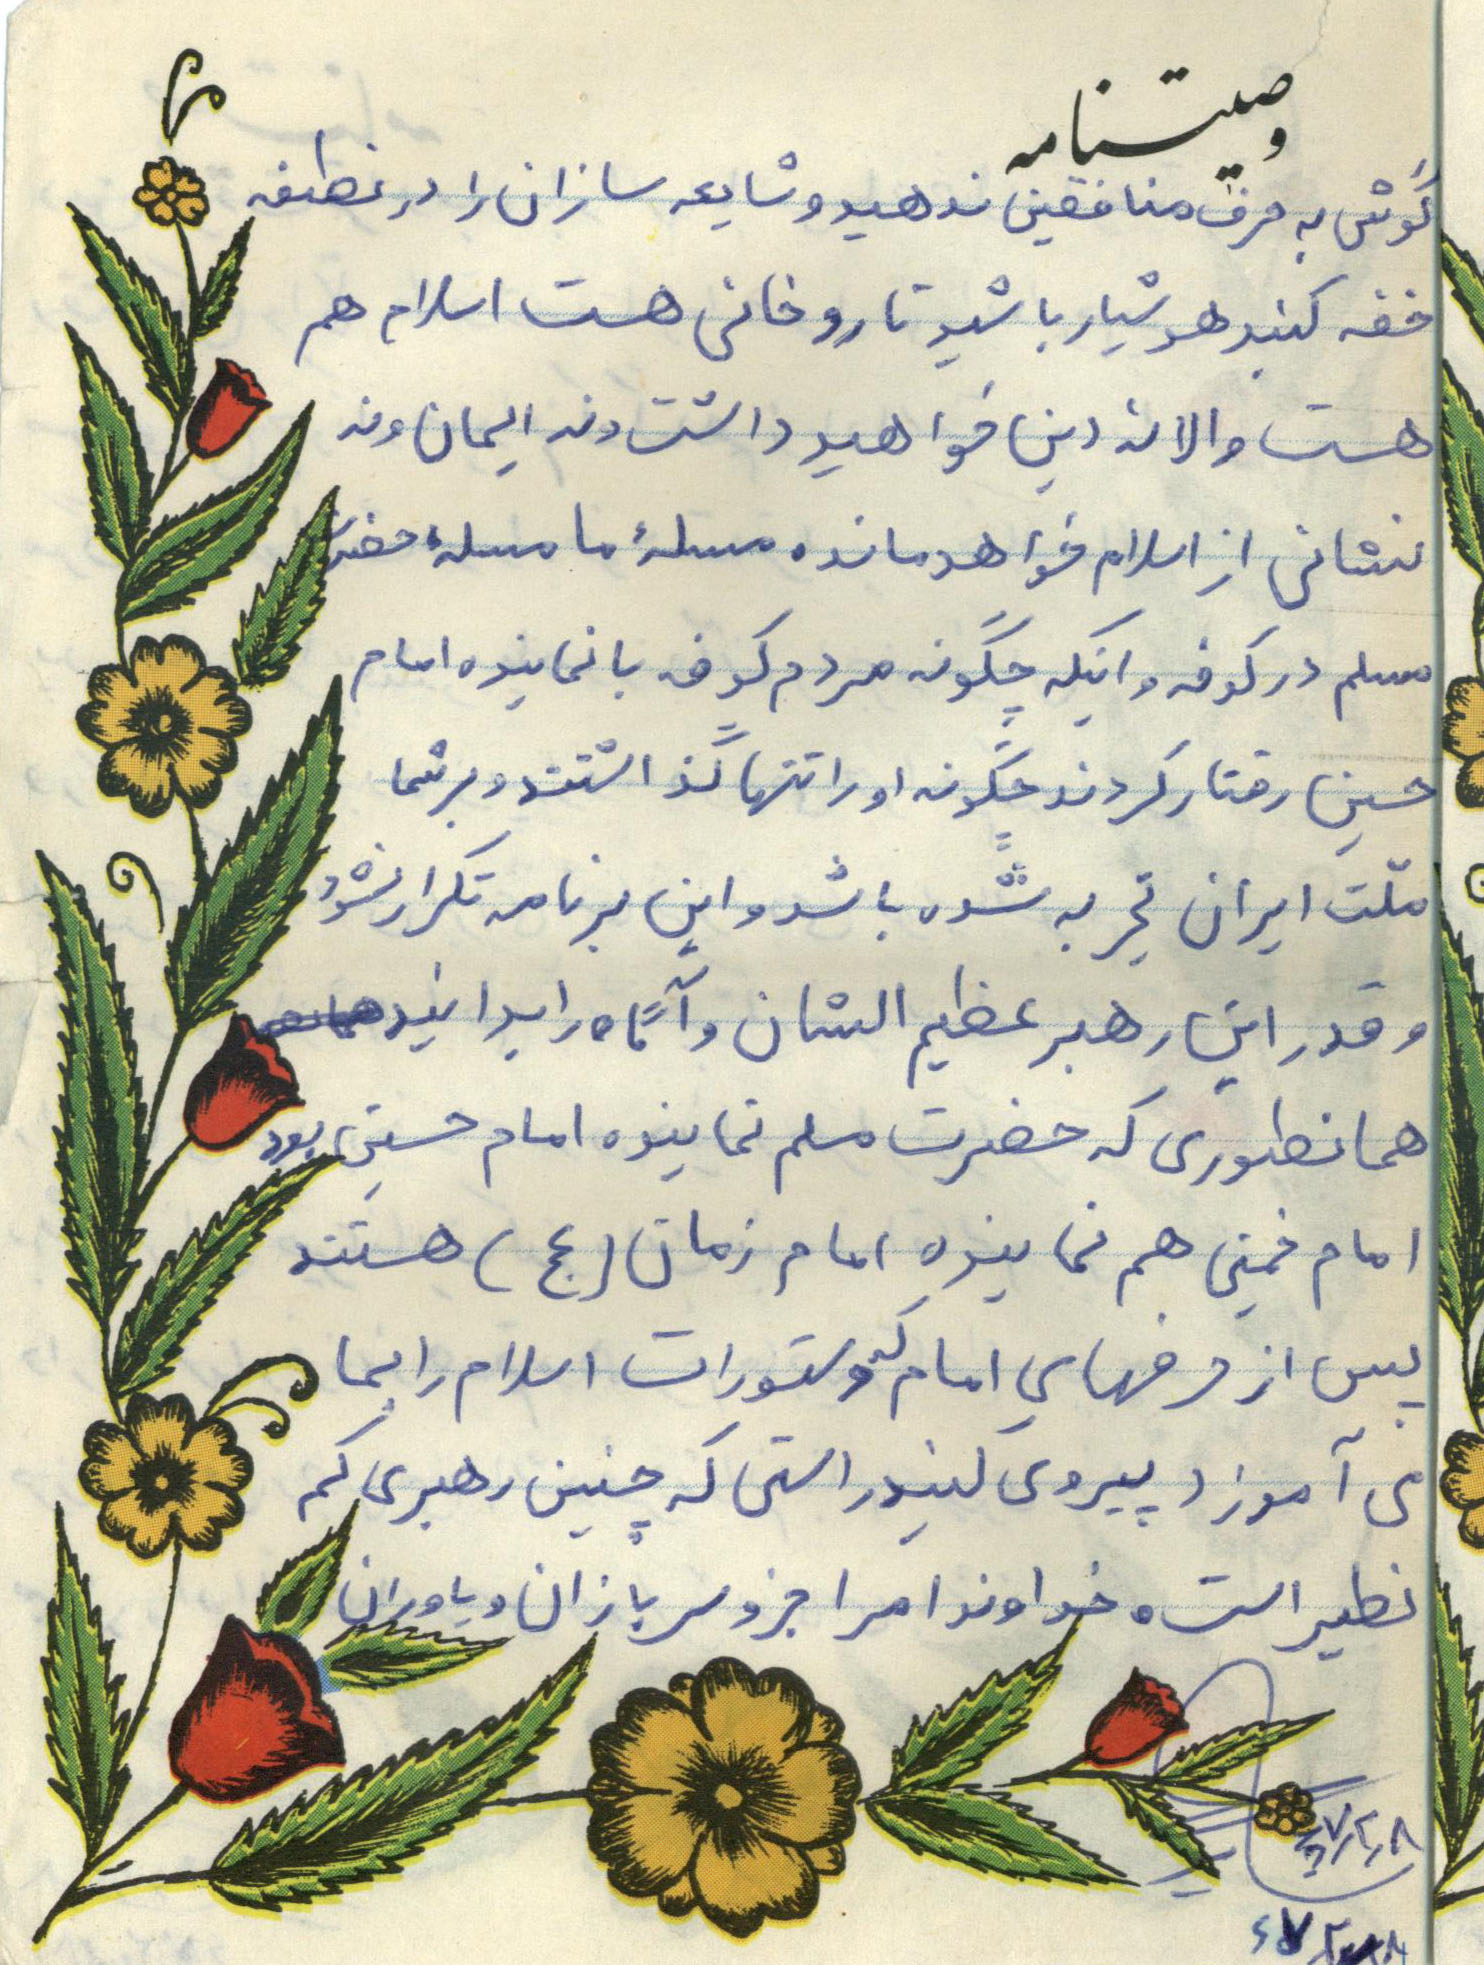 وصیتنامه
گوش به حرف منافقین ندهید و شایعه سازان را در نطفه
خفه کنید هوشیار باشید تا روحانی هست اسلام هم
هست والا نه دین خواهید داشت و نه ایمان و نه
نشانی از اسلام خواهد مانده مسلهٔ ما مسلهٔ حضرت
مسلم در کوفه و اینکه چگونه مردم کوفه با نماینده امام
حسین رفتار کردند چگونه او را تنها گذاشتند و بر شما
ملّت ایران تجربه شده باشد و این برنامه تکرار نشود
و قدر این رهبر عظیم الشان و آگاه را بدانید
همانطوری که حضرت مسلم نماینده امام حسین بود
امام خمینی هم نماینده امام زمان (عج) هستند
پس از حرفهای امام که دستورات اسلام را بما
می آموزد پیروی کنید راستی که چنین رهبری کم
نظیر است ه خداوندا مرا جزو سربازان و یاوران